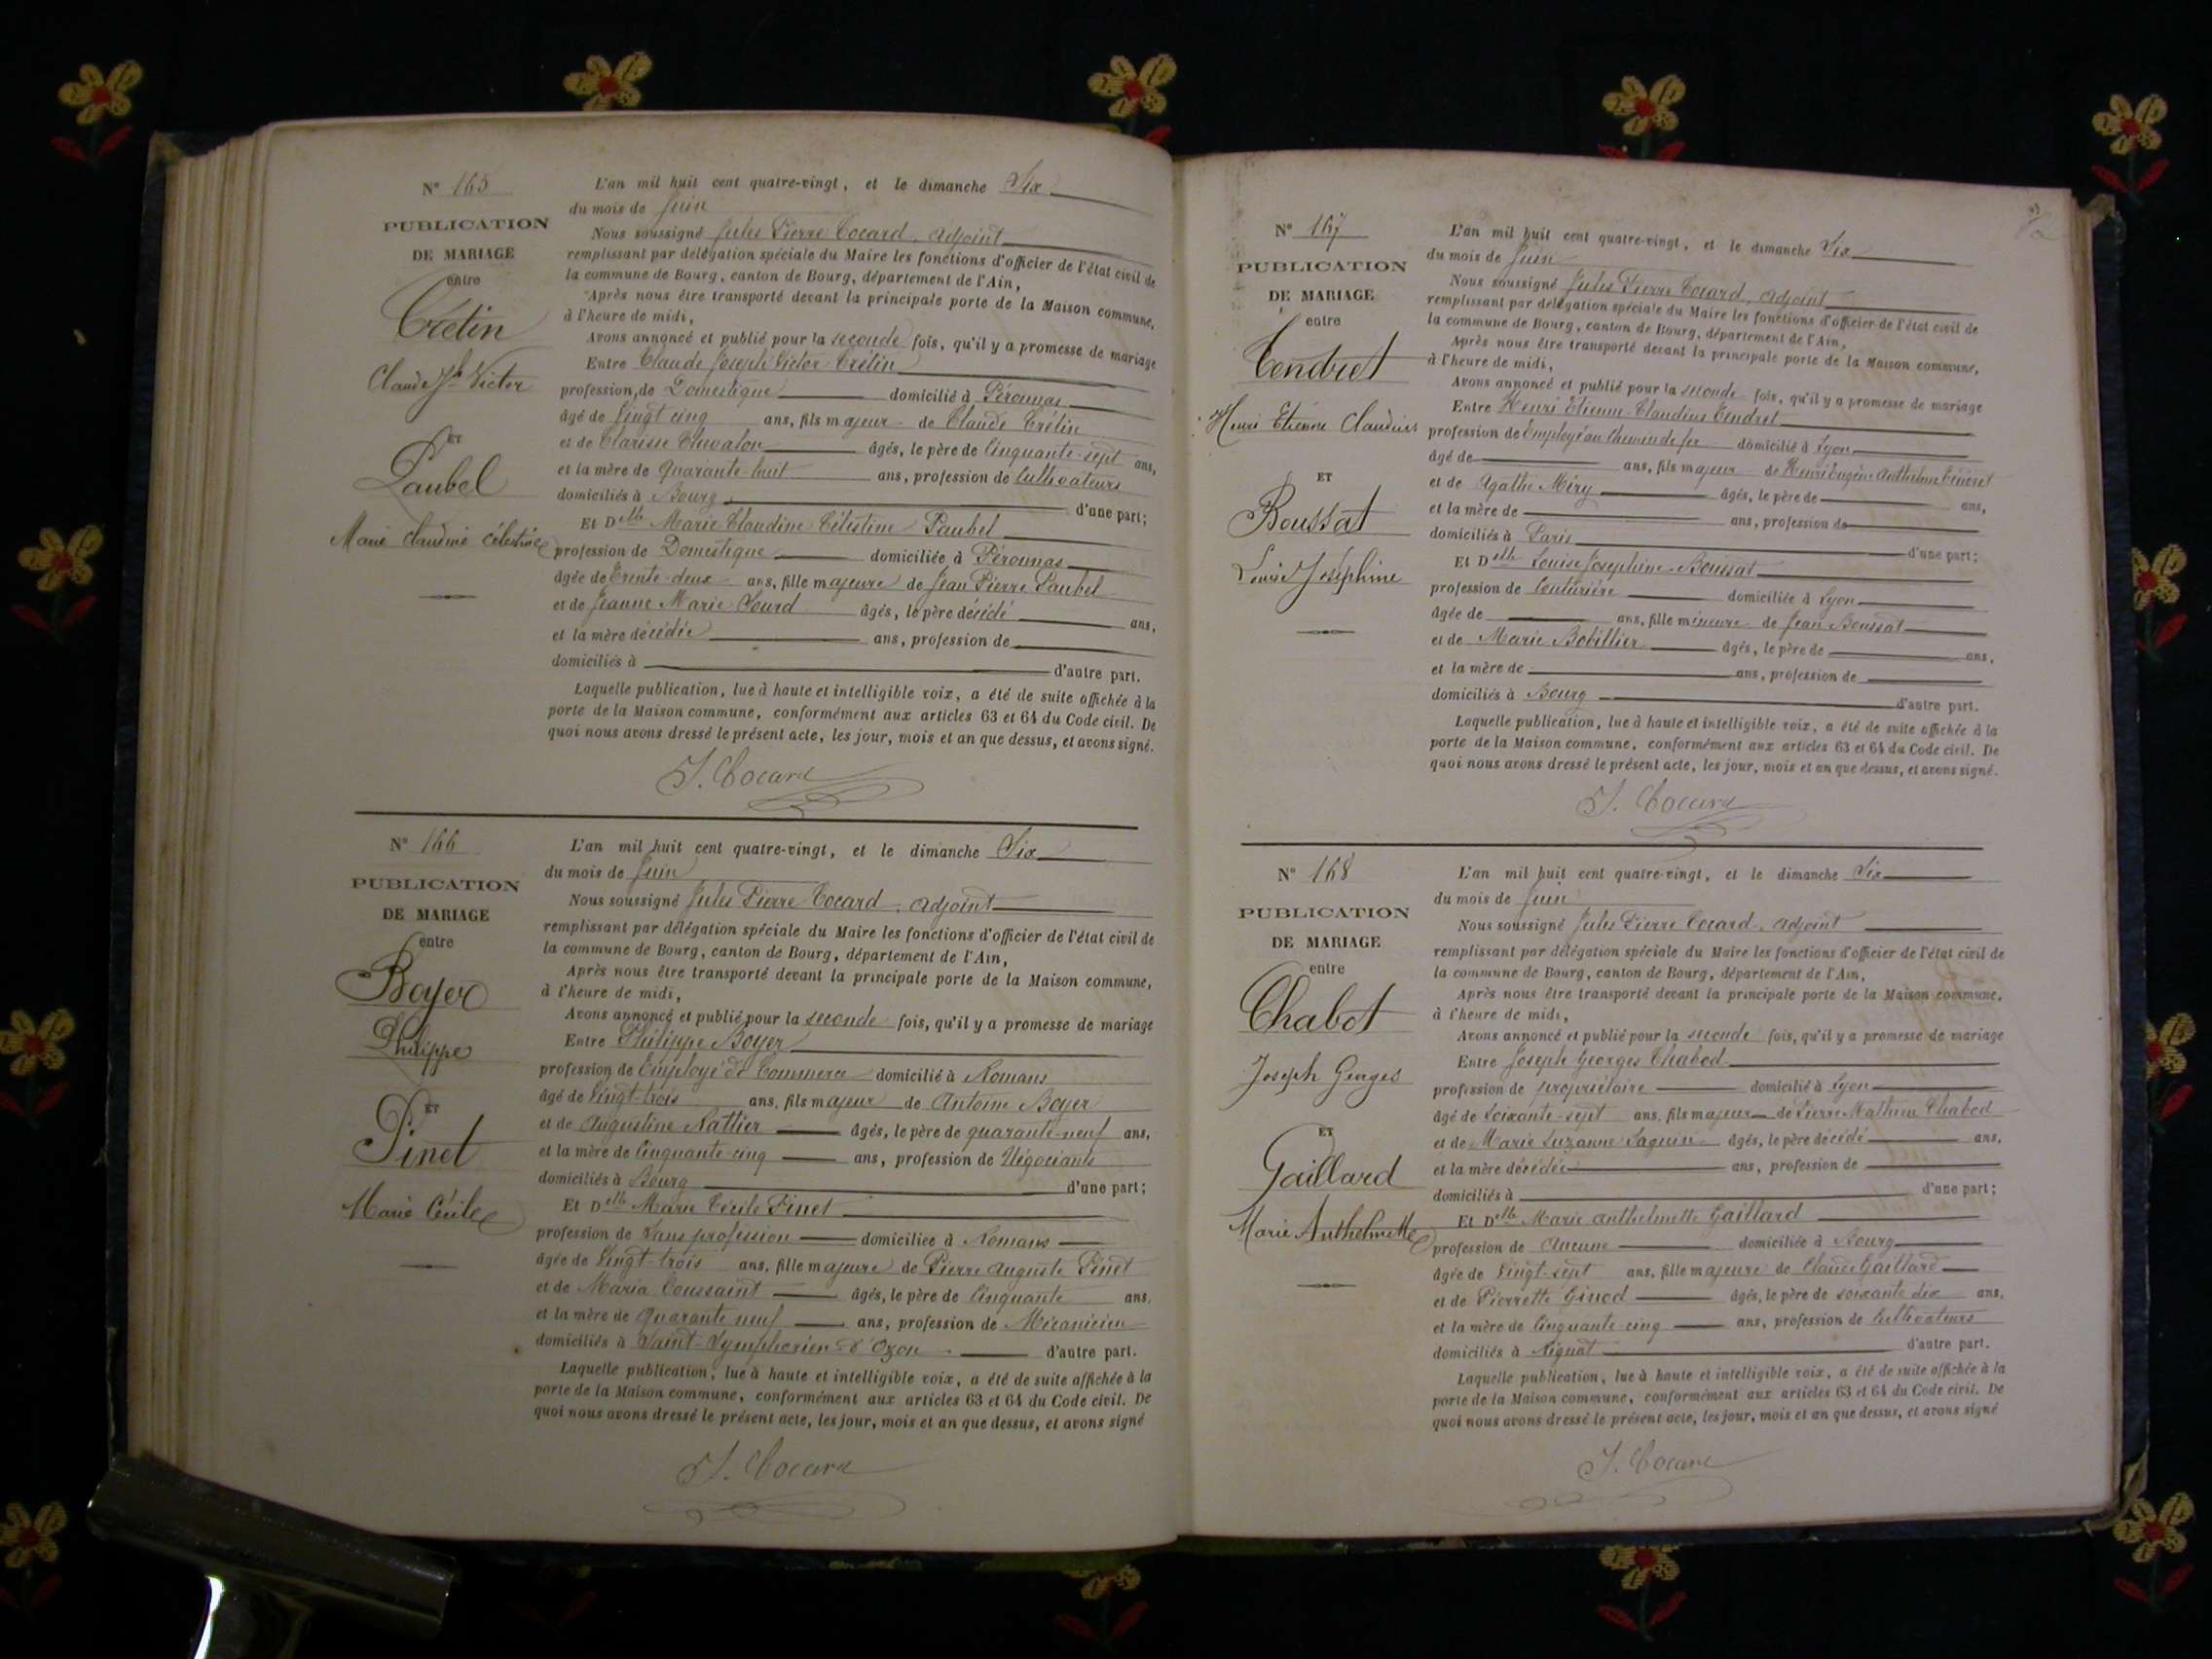 N° 165
PUBLICATION
DE MARIAGE
entre
Crétin
Claude Jh Victor
ET
Paubel
Marie Claudine Célestine
L'an mil huit cent quatre-vingt, et le dimanche Six
du mois de Juin
Nous soussigné Jules Pierre Cocard, adjoint
remplissant par délégation spéciale du Maire les fonctions d'officier de l'état civil de
la commune de Bourg, canton de Bourg, département de l'Ain,
Après nous être transporté devant la principale porte de la Maison commune,
à l'heure de midi,
Avons annoncé et publié pour la seconde fois, qu'il y a promesse de mariage
Entre Claude Joseph Victor Crétin
profession de Domestique domicilié à Péronnas
âgé de Vingt cinq ans, fils majeur de Claude Crétin
et de Clarisse Chevalon âgés, le père de Cinquante-sept ans,
et la mère de Quarante-huit ans, profession de Cultivateurs
domiciliés à Bourg d'une part;
Et Delle Marie Claudine Célestine Paubel
profession de Domestique domiciliée à Péronnas
âgée de Trente-deux ans, fille majeure de Jean Pierre Paubel
et de Jeanne Marie Sourd âgés, le père décédé ans,
et la mère décédée ans, profession de
domiciliés à d'autre part.
Laquelle publication, lue à haute et intelligible voix, a été de suite affichée à la
porte de la Maison commune, conformément aux articles 63 et 64 du Code civil. De
quoi nous avons dressé le présent acte, les jour, mois et an que dessus, et avons signé.
J. Cocard
N° 166
PUBLICATION
DE MARIAGE
entre
Boyer
Philippe
ET
Pinet
Marie Cécile
L'an mil huit cent quatre-vingt, et le dimanche Six
du mois de Juin
Nous soussigné Jules Pierre Cocard, adjoint
remplissant par délégation spéciale du Maire les fonctions d'officier de l'état civil de
la commune de Bourg, canton de Bourg, département de l'Ain,
Après nous être transporté devant la principale porte de la Maison commune,
à l'heure de midi,
Avons annoncé et publié pour la seconde fois, qu'il y a promesse de mariage
Entre Philippe Boyer
profession de Employé de Commerce domicilié à Romans
âgé de Vingt-trois ans, fils majeur de Antoine Boyer
et de Augustine Nattier âgés, le père de quarante-neuf ans,
et la mère de Cinquante-cinq ans, profession de Négociants
domiciliés à Bourg d'une part;
Et Delle Marie Cécile Pinet
profession de Sans profession domiciliée à Romans
âgée de Vingt-trois ans, fille majeure de Pierre Auguste Pinet
et de Maria Toussaint âgés, le père de Cinquante ans,
et la mère de Quarante neuf ans, profession de Mécanicien
domiciliés à Saint-Symphorien d'Ozon d'autre part.
Laquelle publication, lue à haute et intelligible voix, a été de suite affichée à la
porte de la Maison commune, conformément aux articles 63 et 64 du Code civil. De
quoi nous avons dressé le présent acte, les jour, mois et an que dessus, et avons signé
J. Cocard
N° 167
PUBLICATION
DE MARIAGE
entre
Tendret
Henri Etienne Claudius
ET
Boussat
Louise Joséphine
L'an mil huit cent quatre-vingt, et le dimanche Six
du mois de Juin
Nous soussigné Jules Pierre Cocard, adjoint
remplissant par délégation spéciale du Maire les fonctions d'officier de l'état civil de
la commune de Bourg, canton de Bourg, département de l'Ain,
Après nous être transporté devant la principale porte de la Maison commune,
à l'heure de midi,
Avons annoncé et publié pour la seconde fois, qu'il y a promesse de mariage
Entre Henri Etienne Claudius Tendret
profession de Employé au Chemin de fer domicilié à Lyon
âgé de ans, fils majeur de Henri Eugène Anthelme Tendret
et de Agathe Méry âgés, le père de ans,
et la mère de ans, profession de
domiciliés à Paris d'une part;
Et Delle Louise Joséphine Boussat
profession de Couturière domiciliée à Lyon
âgée de ans, fille mineure de Jean Boussat
et de Marie Bobillier âgés, le père de ans,
et la mère de ans, profession de
domiciliés à Bourg d'autre part.
Laquelle publication, lue à haute et intelligible voix, a été de suite affichée à la
porte de la Maison commune, conformément aux articles 63 et 64 du Code civil. De
quoi nous avons dressé le présent acte, les jour, mois et an que dessus, et avons signé.
J. Cocard
N° 168
PUBLICATION
DE MARIAGE
entre
Chabot
Joseph Georges
ET
Gaillard
Marie Anthelmette
L'an mil huit cent quatre-vingt, et le dimanche Six
du mois de Juin
Nous soussigné Jules Pierre Cocard, adjoint
remplissant par délégation spéciale du Maire les fonctions d'officier de l'état civil de
la commune de Bourg, canton de Bourg, département de l'Ain,
Après nous être transporté devant la principale porte de la Maison commune,
à l'heure de midi,
Avons annoncé et publié pour la seconde fois, qu'il y a promesse de mariage
Entre Joseph Georges Chabod
profession de propriétaire domicilié à Lyon
âgé de Soixante-sept ans, fils majeur de Pierre Mathieu Chabod
et de Marie Suzanne Saguin âgés, le père décédé ans,
et la mère décédée ans, profession de
domiciliés à d'une part;
Et Delle Marie Anthelmette Gaillard
profession de Aucune domiciliée à Bourg
âgée de Vingt-sept ans, fille majeure de Claude Gaillard
et de Pierrette Ginod âgés, le père de soixante dix ans,
et la mère de Cinquante-cinq ans, profession de Cultivateurs
domiciliés à Rignat d'autre part.
Laquelle publication, lue à haute et intelligible voix, a été de suite affichée à la
porte de la Maison commune, conformément aux articles 63 et 64 du Code civil. De
quoi nous avons dressé le présent acte, les jour, mois et an que dessus, et avons signé
J. Cocard